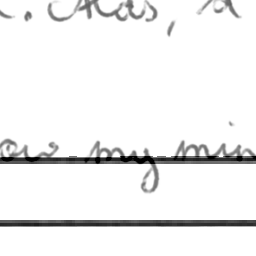 . Alas, a
ow my min